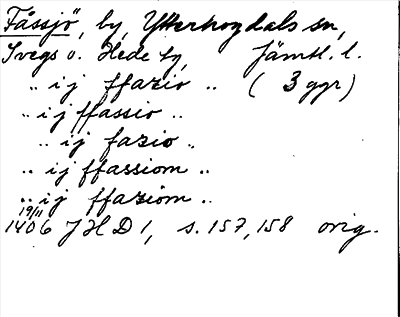 Fåssjö, by, Ytterhogdals sn,
Svegs o. Hede tg, Jämtl. l.
.. i j ffazio .. ( 3 ggr)
.. i j ffassio ..
.. i j fazio ..
.. i j ffassiom ..
.. i j ffaziom ..
19/11
1406 JHD 1, s. 157, 158 orig.